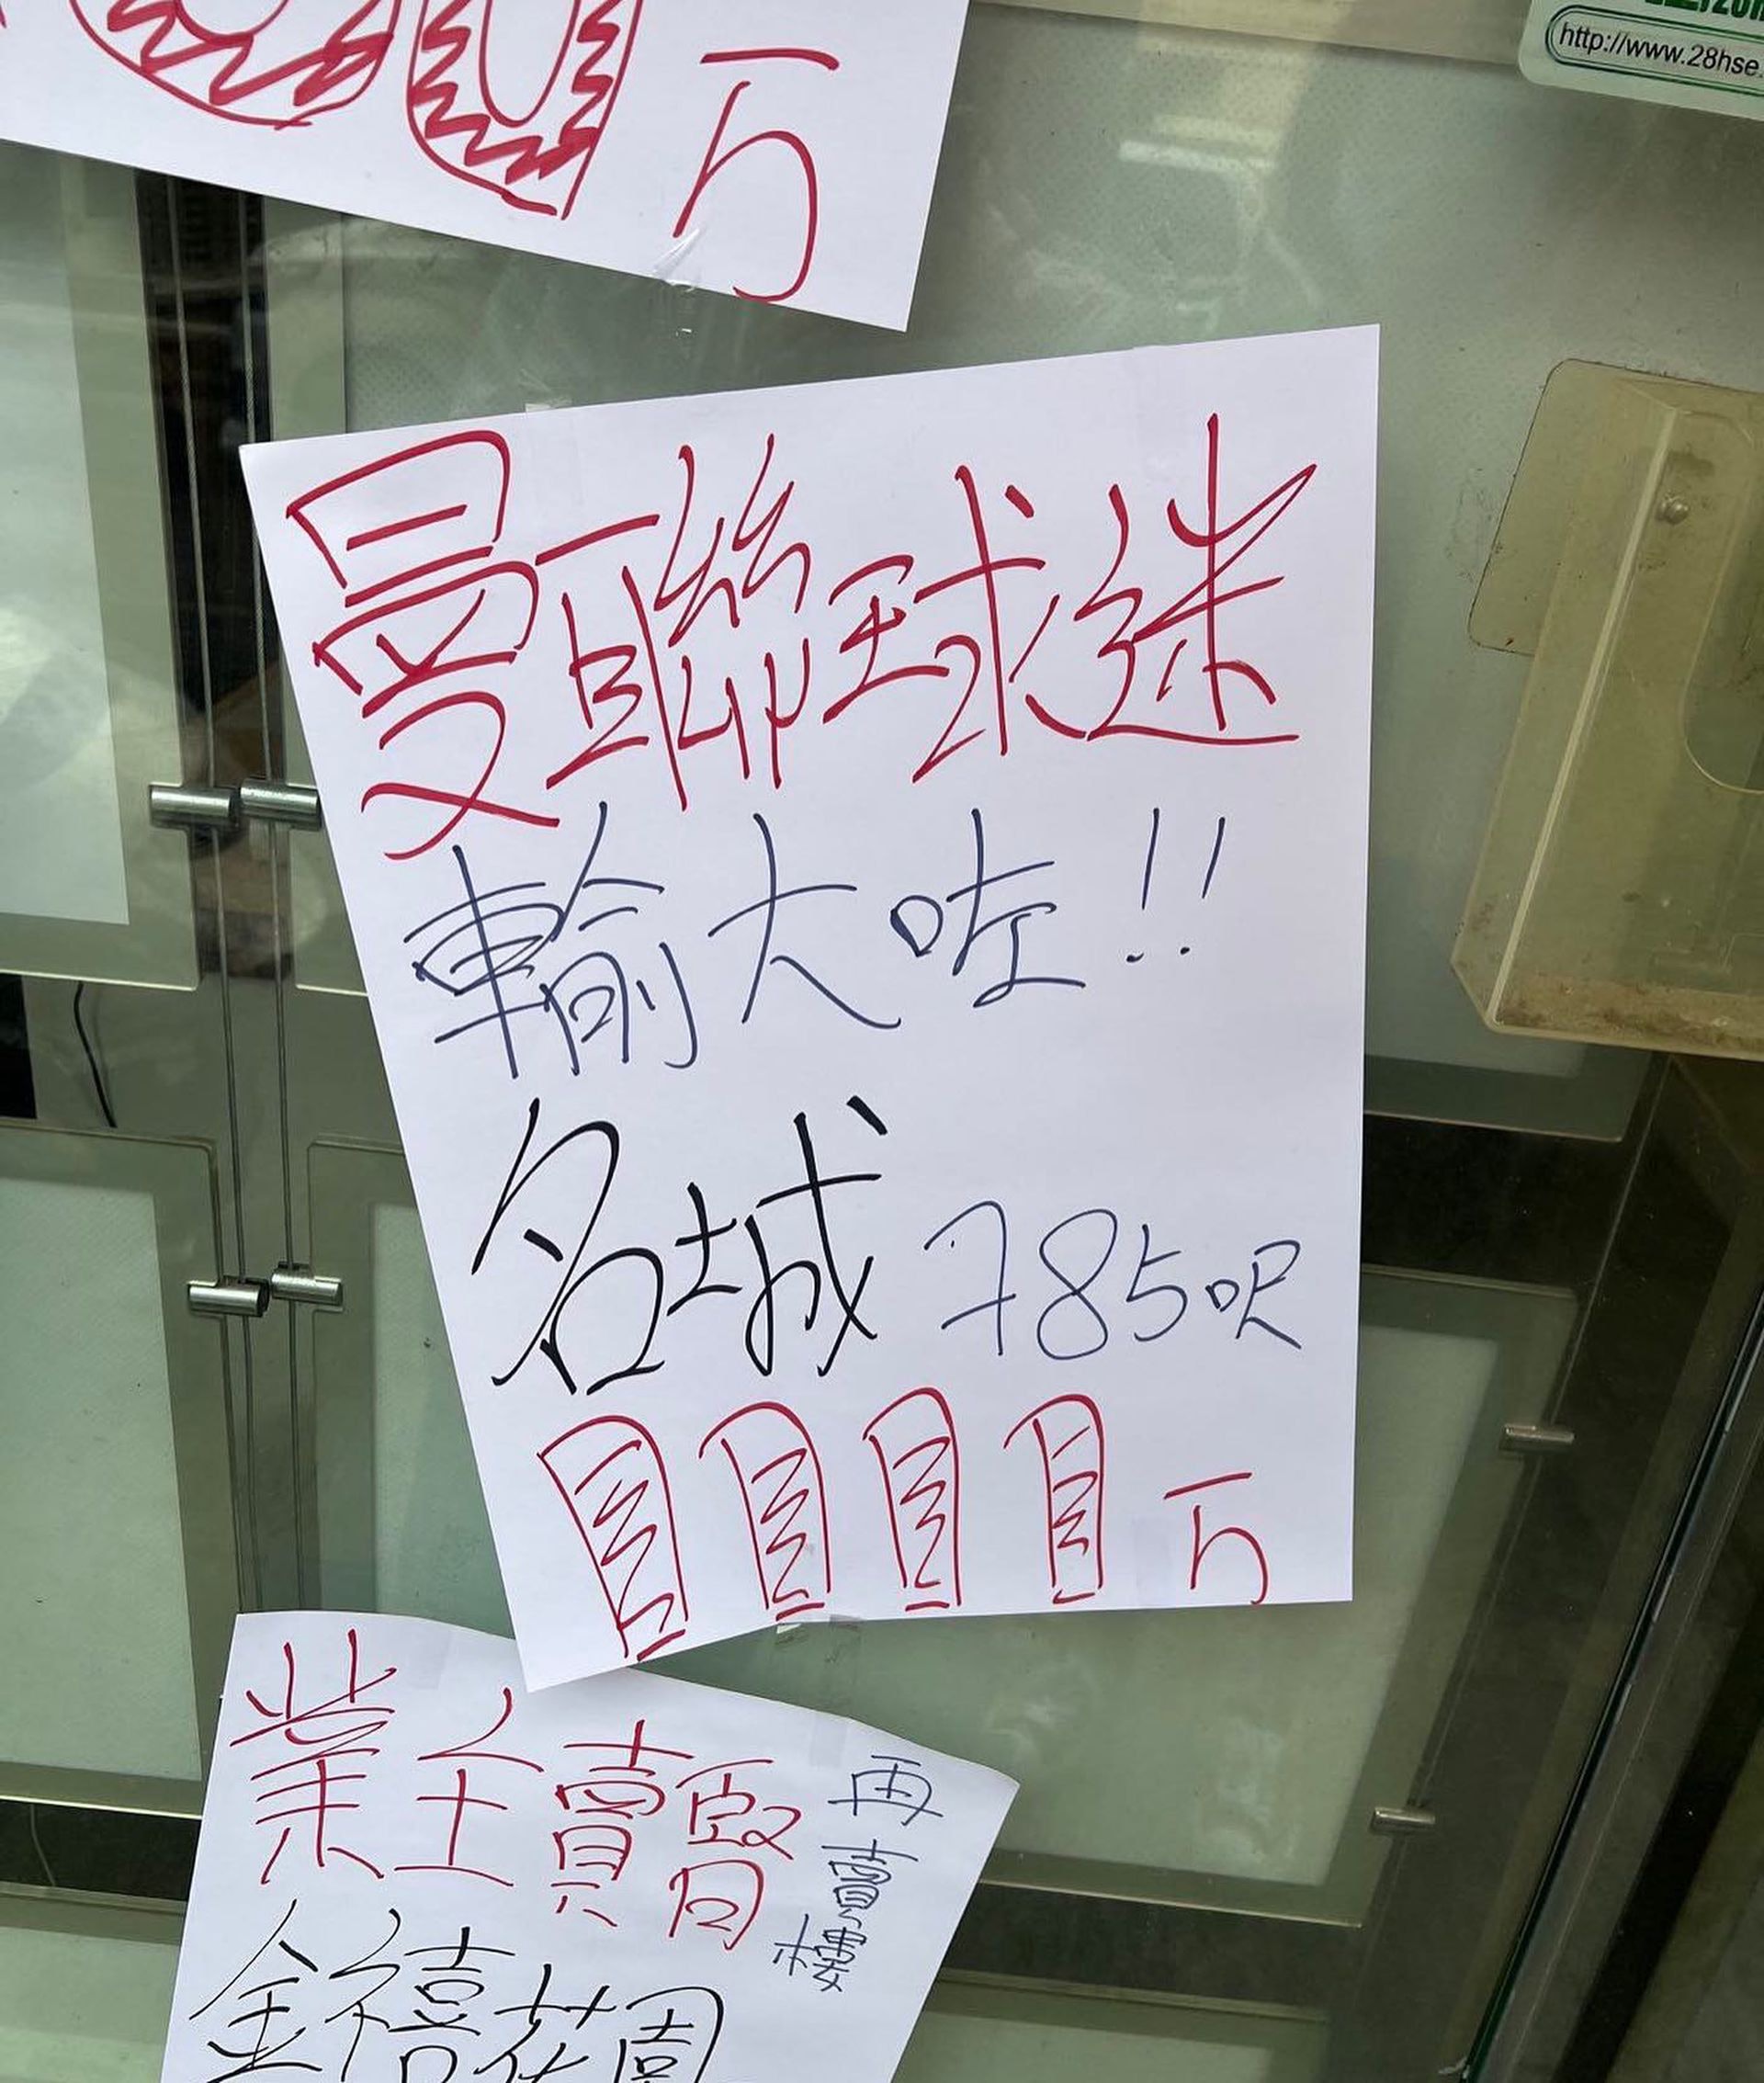 万
http://www.28hse.
曼聯球迷
輸大咗!!
名城 785呎
1111万
業主賣腎
再賣樓
金禧花園